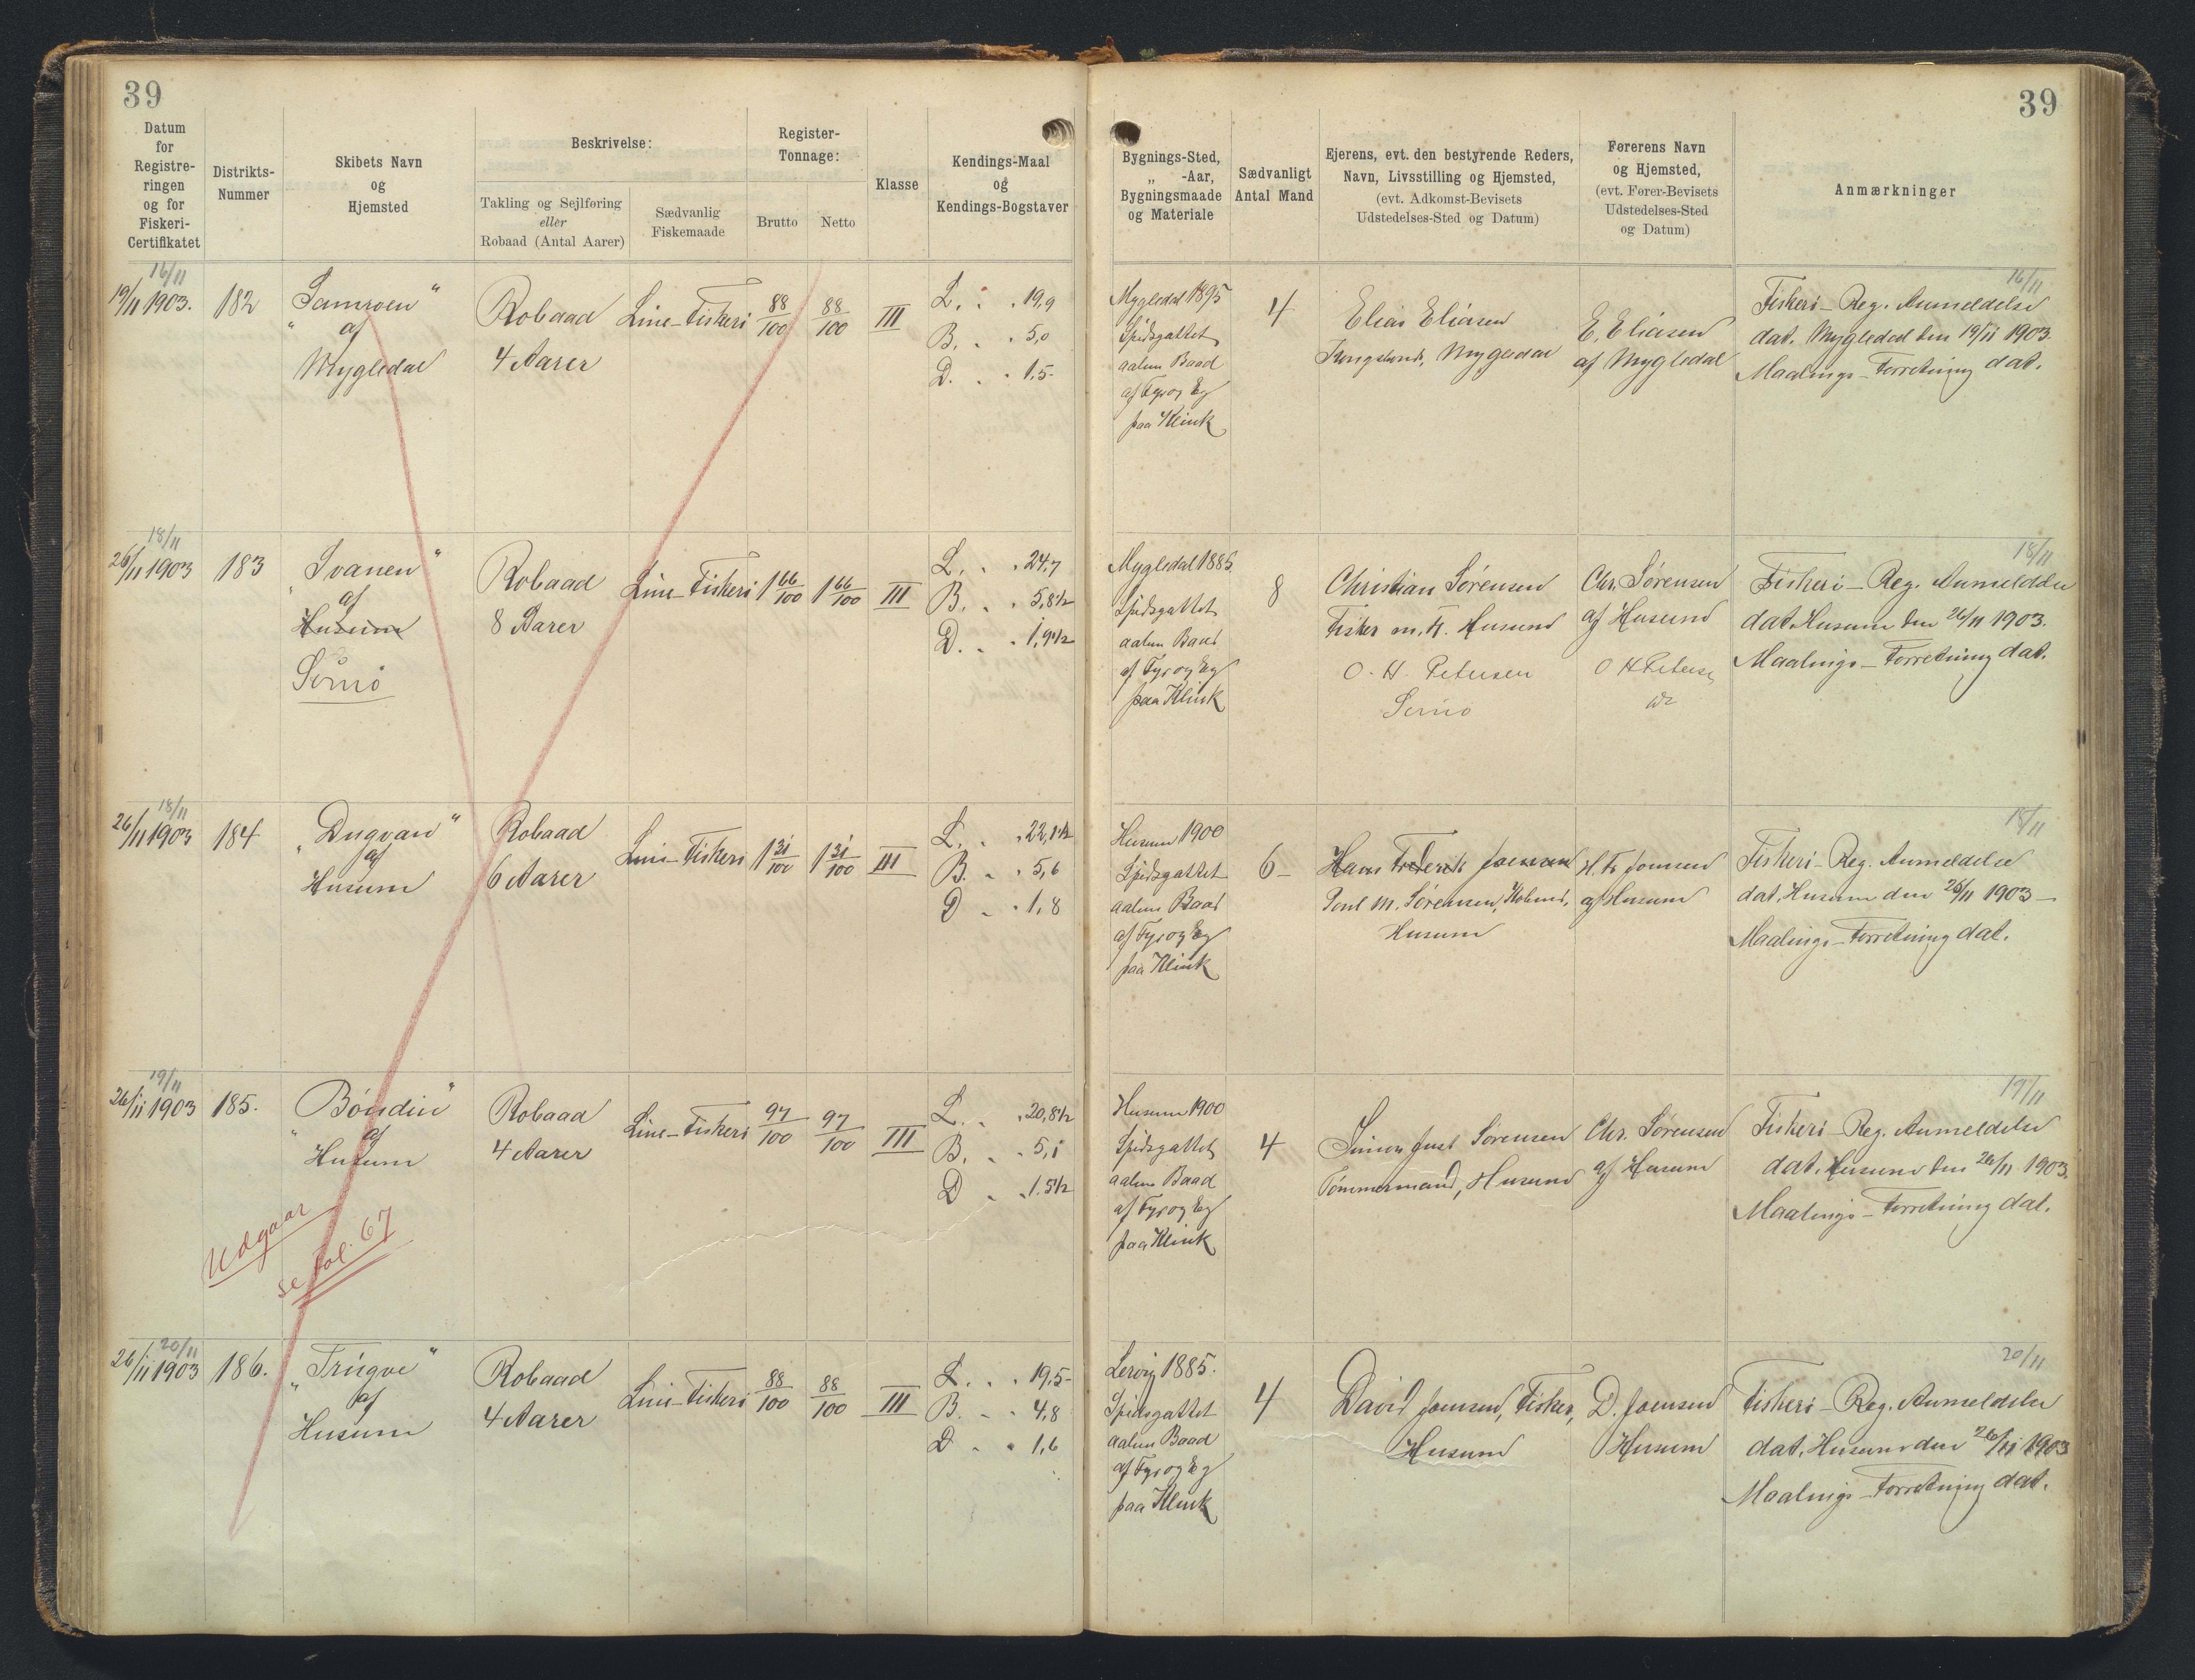 39
39
Datum
for
Registre-
ringen
og for
Fiskeri-
Certifikatet
Distrikts-
Nummer
Skibets Navn
og
Hjemsted
Beskrivelse:
Takling og Sejlføring
eller
Robaad (Antal Aarer)
Sædvanlig
Fiskemaade
Register-
Tonnage:
Brutto
Netto
Klasse
Kendings-Maal
og
Kendings-Bogstaver
Bygnings-Sted,
„ -Aar,
Bygningsmaade
og Materiale
Sædvanligt
Antal Mand
Ejerens, evt. den bestyrende Reders,
Navn, Livsstilling og Hjemsted,
(evt. Adkomst-Bevisets
Udstedelses-Sted og Datum)
Førerens Navn
og Hjemsted,
(evt. Fører-Bevisets
Udstedelses-Sted
og Datum)
Anmærkninger
16/11
19/11 1903.
182
af
Mygledal
Robaad
4 Aarer
Line-Fiskeri
88/100
88/100
III
L. . . 19,9
B. . . 5,0
D. . . 1,5
Mygledal 1895
Spidsgattet
aaben Baad
af Fyr og Eg
paa Klink
4
Elias Eliasen
Kongsbonde, Mygledal
E. Eliasen
af Mygledal
16/11
Fiskeri-Reg. Anmeldelse
dat. Mygledal den 19/11 1903.
Maalings-Forretning dat.
18/11
26/11 1903
183
„Svanen“
af
Husum
Robaad
8 Aarer
Line-Fiskeri
1 66/100
1 66/100
III
L. . . 24,7
B. . . 5,8½
D. . . 1,9½
Mygledal 1885
Spidsgattet
aaben Baad
af Fyr og Eg
paa Klink
8
Christian Sørensen
Fisker m. H. Husum
O. H. Petersen
Chr. Sørensen
af Husum
O H Peterse
18/11
Fiskeri-Reg. Anmeldelse
dat. Husum den 26/11 1903.
Maalings-Forretning dat.
18/11
26/11 1903
184
„Dugvan“
af
Husum
Robaad
6 Aarer
Line-Fiskeri
1 31/100
1 31/100
III
L. . . 22,1½
B. . . 5,6
D . . 1,8
Husum 1900
Spidsgattet
aaben Baad
af Fyr og Eg
paa Klink
6
Hans Frederik Joensen
Poul M. Sørensen,
Husum
H. Fr Joensen
af Husum
18/11
Fiskeri-Reg. Anmeldelse
dat. Husum den 26/11 1903
Maalings-Forretning dat.
19/11
26/11 1903
185.
„Bóndin“
af
Husum
Robaad
4 Aarer
Line-Fiskeri
97/100
97/100
III
L. . . 20,8½
B. . . 5,1
D . . 1.5½
Husum 1900
Spidsgattet
aaben Baad
af Fyr og Eg
paa Klink
4
Simon Just Sørensen
Tømmermand, Husum
Chr. Sørensen
af Husum
19/11
Fiskeri-Reg. Anmeldelse
dat. Husum den 26/11 1903.
Maalings-Forretning dat.
Udgaar
se fol. 67
20/11
26/11 1903
186.
„Trúgve“
af
Husum
Robaad
4 Aarer
Line-Fiskeri
88/100
88/100
III
L. . . 19,5
B. . . 4,8
D . . 1,6
Lervig 1885.
Spidsgattet
aaben Baad
af Fyr og Eg
paa Klink
4
David Joensen, Fisker,
Husum
D. Joensen
Husum
20/11
Fiskeri-Reg. Anmeldelse
dat. Husum den 26/11 1903
Maalings-Forretning dat.